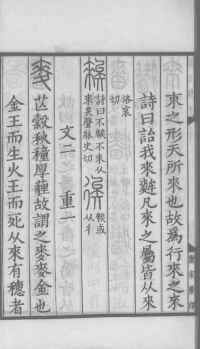 朿之形天所來也故爲行來之來
詩曰詒我來麰凡來之屬皆从來
洛哀
切
詩曰不𥏳不來从
來矣聲牀史切
𥏳或
从彳
文二 重一
麥 芒穀秋穜厚薶故謂之麥麥金也
金王而生火王而死从來有穗者